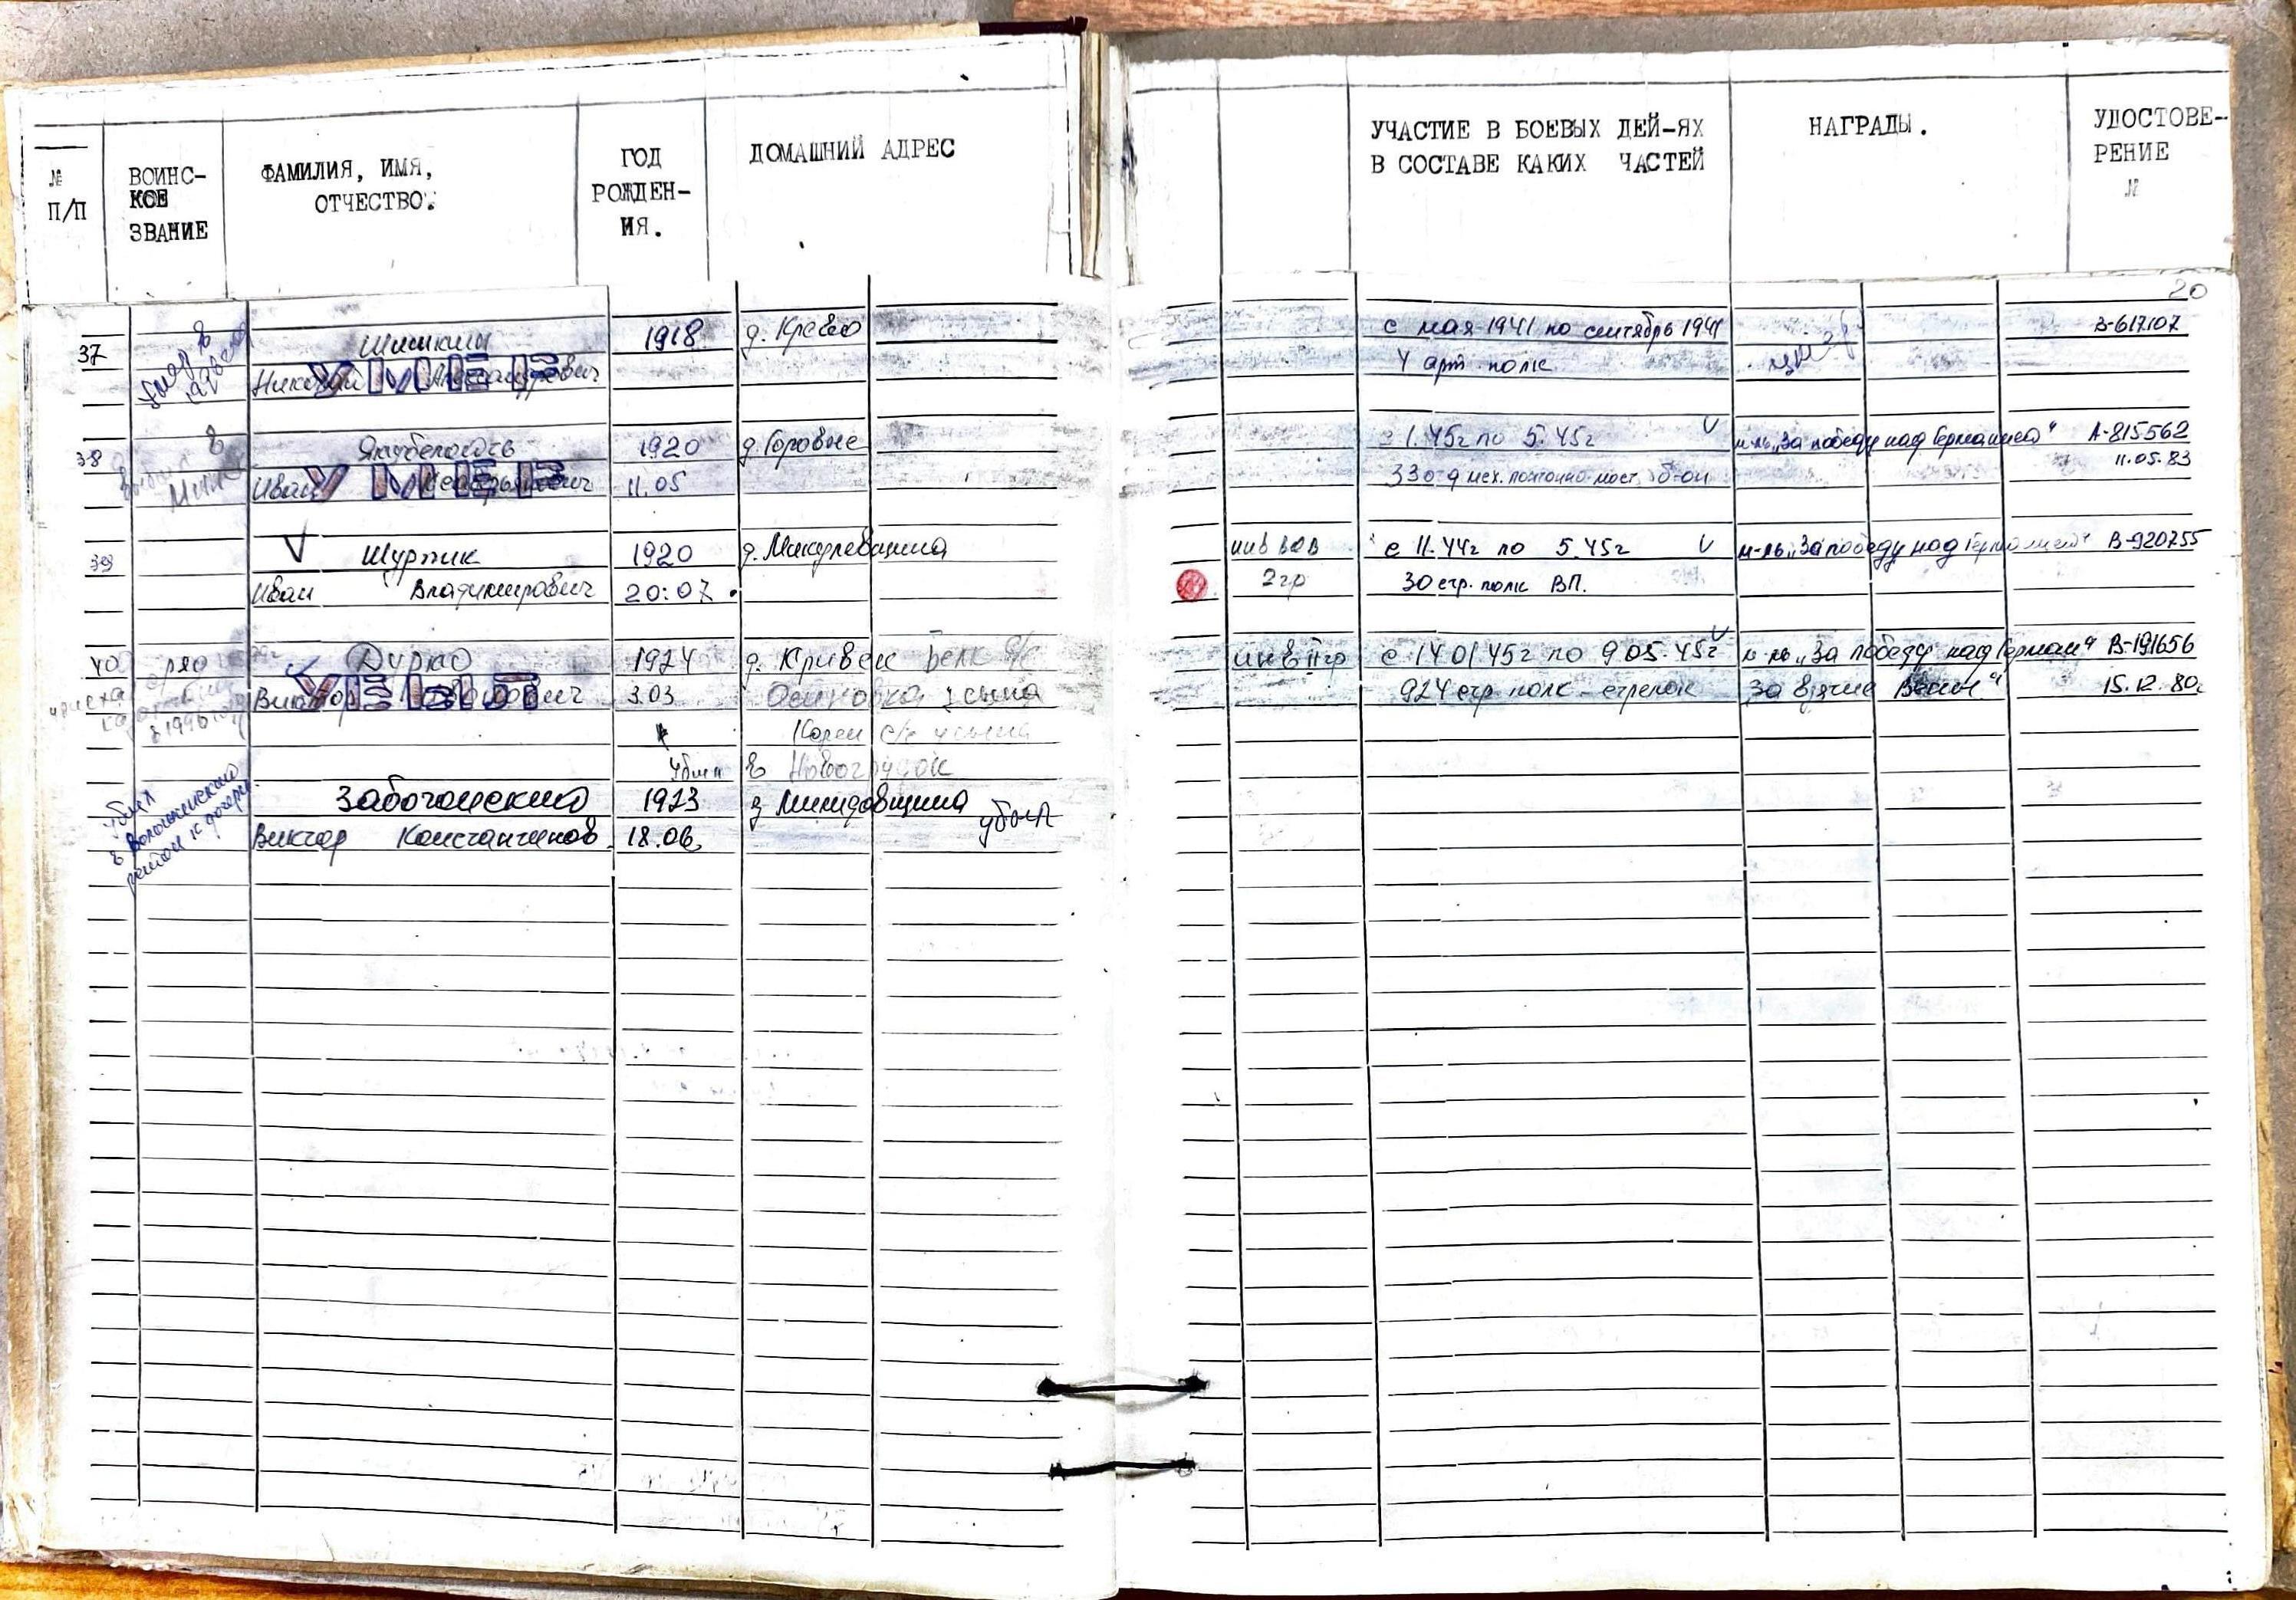 № П/П
ВОИНС-
КОЕ
ЗВАНИЕ
ФАМИЛИЯ, ИМЯ,
ОТЧЕСТВО.
ГОД
РОЖДЕН-
ИЯ.
ДОМАШНИЙ АДРЕС
УЧАСТИЕ В БОЕВЫХ ДЕЙ-ЯХ
В СОСТАВЕ КАКИХ ЧАСТЕЙ
НАГРАДЫ.
УДОСТОВЕ-
РЕНИЕ
№
20
37 Шишкин 1918 д. Крево с мая 1941 по сентябрь 1941 В-617107
Николай Александрович 4 арт. полк
УМЕР
38 1920 д. Горовые с 1.45г по 5.45г м-ль „За победу над Германией" А-815562
Иван 11.05 330 мост. б-он 11.05.83
УМЕР
39 Шурпик 1920 д. Микулевщина инв ВОВ с 11.44г по 5.45г м-ль „За победу над Германией" В-920755
Иван Владимирович 20.07 2гр 30 стр. полк ВП.
40 ряд Дурко 1924 д. Кривск инв II гр с 14 01 45г по 9 05.45г м-ль „За победу над Герман" В-191656
Виктор 3.03 Осиновка у сына 924 стр. полк - стрелок За взятие 15.12.80г
ВЫБЫЛ
в 1990
с/с у сына
Убыл в Новогрудок
Заботонский 1923 д Милидовщина убыл
Виктор Константинов. 18.06.
убыл
в Воложинский
район к дочери.